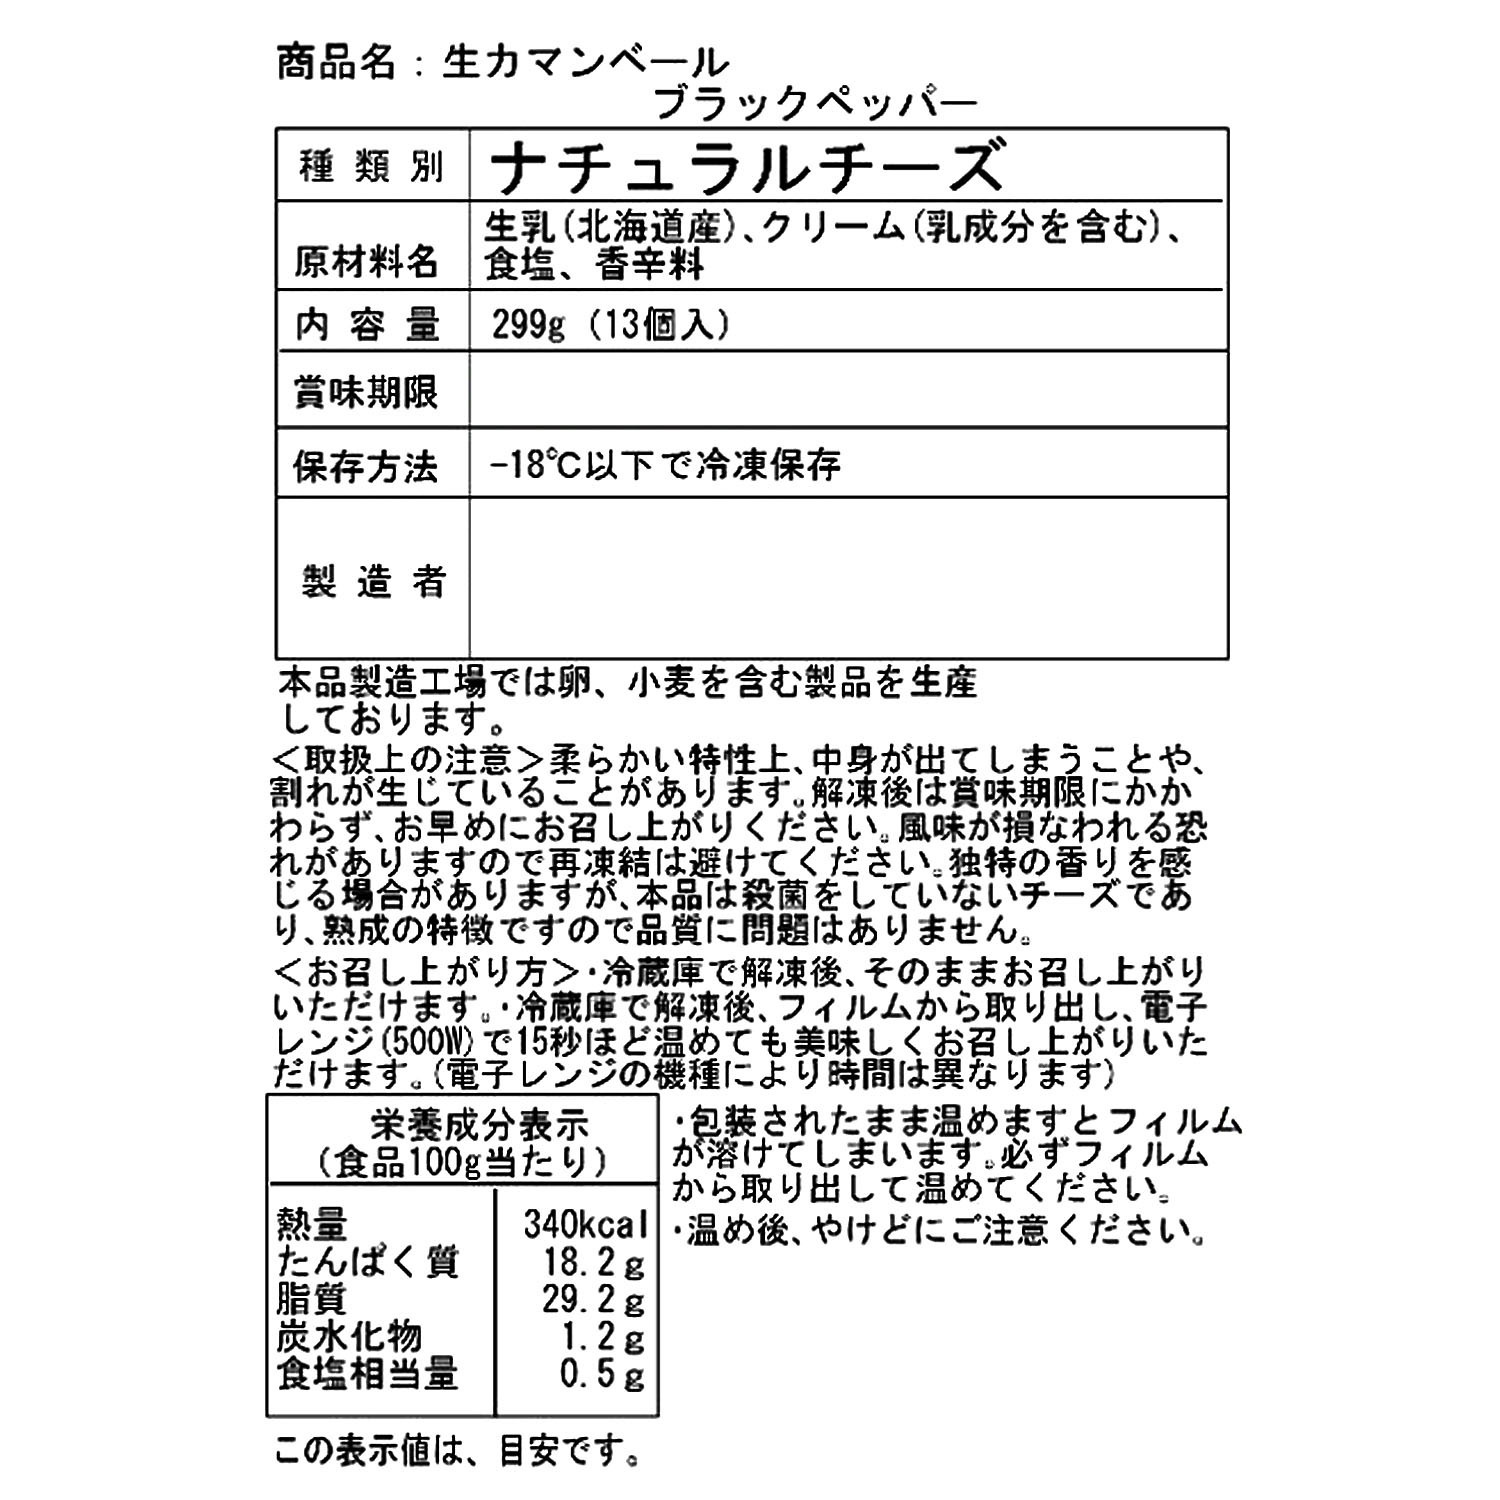 商品名：生カマンベール
ブラックペッパー
種類別 ナチュラルチーズ
生乳(北海道産)、クリーム(乳成分を含む)、
原材料名 食塩、香辛料
内容量 299g (13個入)
賞味期限
保存方法 -18℃以下で冷凍保存
製造者
本品製造工場では卵、小麦を含む製品を生産
しております。
＜取扱上の注意＞柔らかい特性上、中身が出てしまうことや、
割れが生じていることがあります。解凍後は賞味期限にかか
わらず、お早めにお召し上がりください。風味が損なわれる恐
れがありますので再凍結は避けてください。独特の香りを感
じる場合がありますが、本品は殺菌をしていないチーズであ
り、熟成の特徴ですので品質に問題はありません。
＜お召し上がり方＞・冷蔵庫で解凍後、そのままお召し上がり
いただけます。・冷蔵庫で解凍後、フィルムから取り出し、電子
レンジ(500W)で15秒ほど温めても美味しくお召し上がりいた
だけます。(電子レンジの機種により時間は異なります)
栄養成分表示
(食品100g当たり)
熱量 340kcal
たんぱく質 18.2g
脂質 29.2g
炭水化物 1.2g
食塩相当量 0.5g
・包装されたまま温めますとフィルム
が溶けてしまいます。必ずフィルム
から取り出して温めてください。
・温め後、やけどにご注意ください。
この表示値は、目安です。